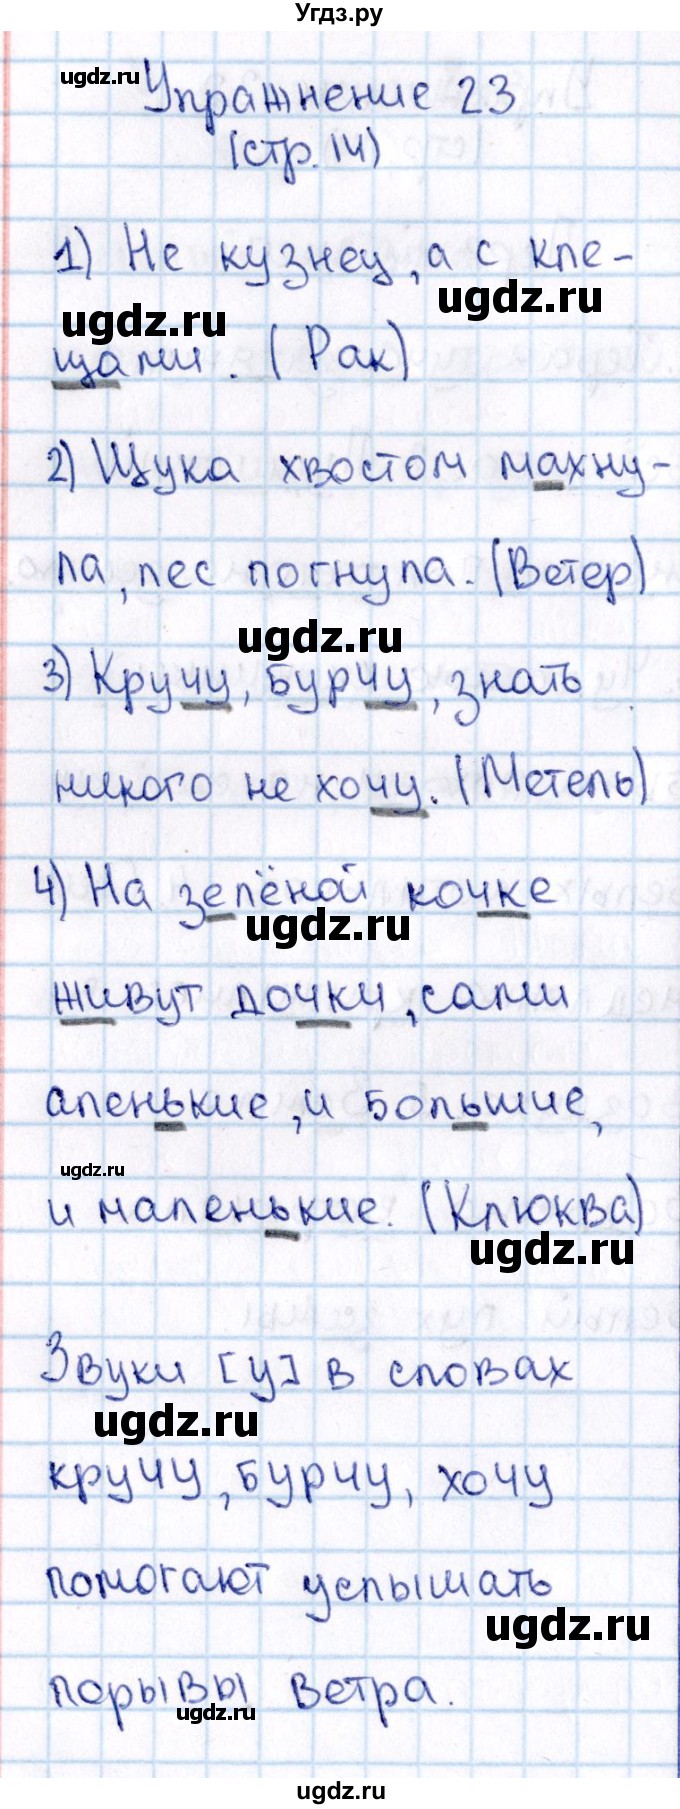 Угдз.ру
ugdz.ru
Упражнение 23
(стр. 14)
1) Не кузнец, а с кле-
ugdz.ru
ugdz.ru
щами. (Рак)
2) Щука хвостом махну-
ла, лес погнула. (Ветер)
ugdz.ru
3) Кручу, бурчу, знать
никого не хочу. (Метель)
4) На зелёной кочке
ugdz.ru
живут дочки, сами
аленькие, и большие,
ugdz.ru
и маленькие. (Клюква)
ugdz.ru
Звуки [у] в словах
ugdz.ru
кручу, бурчу, хочу
помогают услышать
ugdz.ru
порывы ветра.
ugdz.ru
ugdz.ru